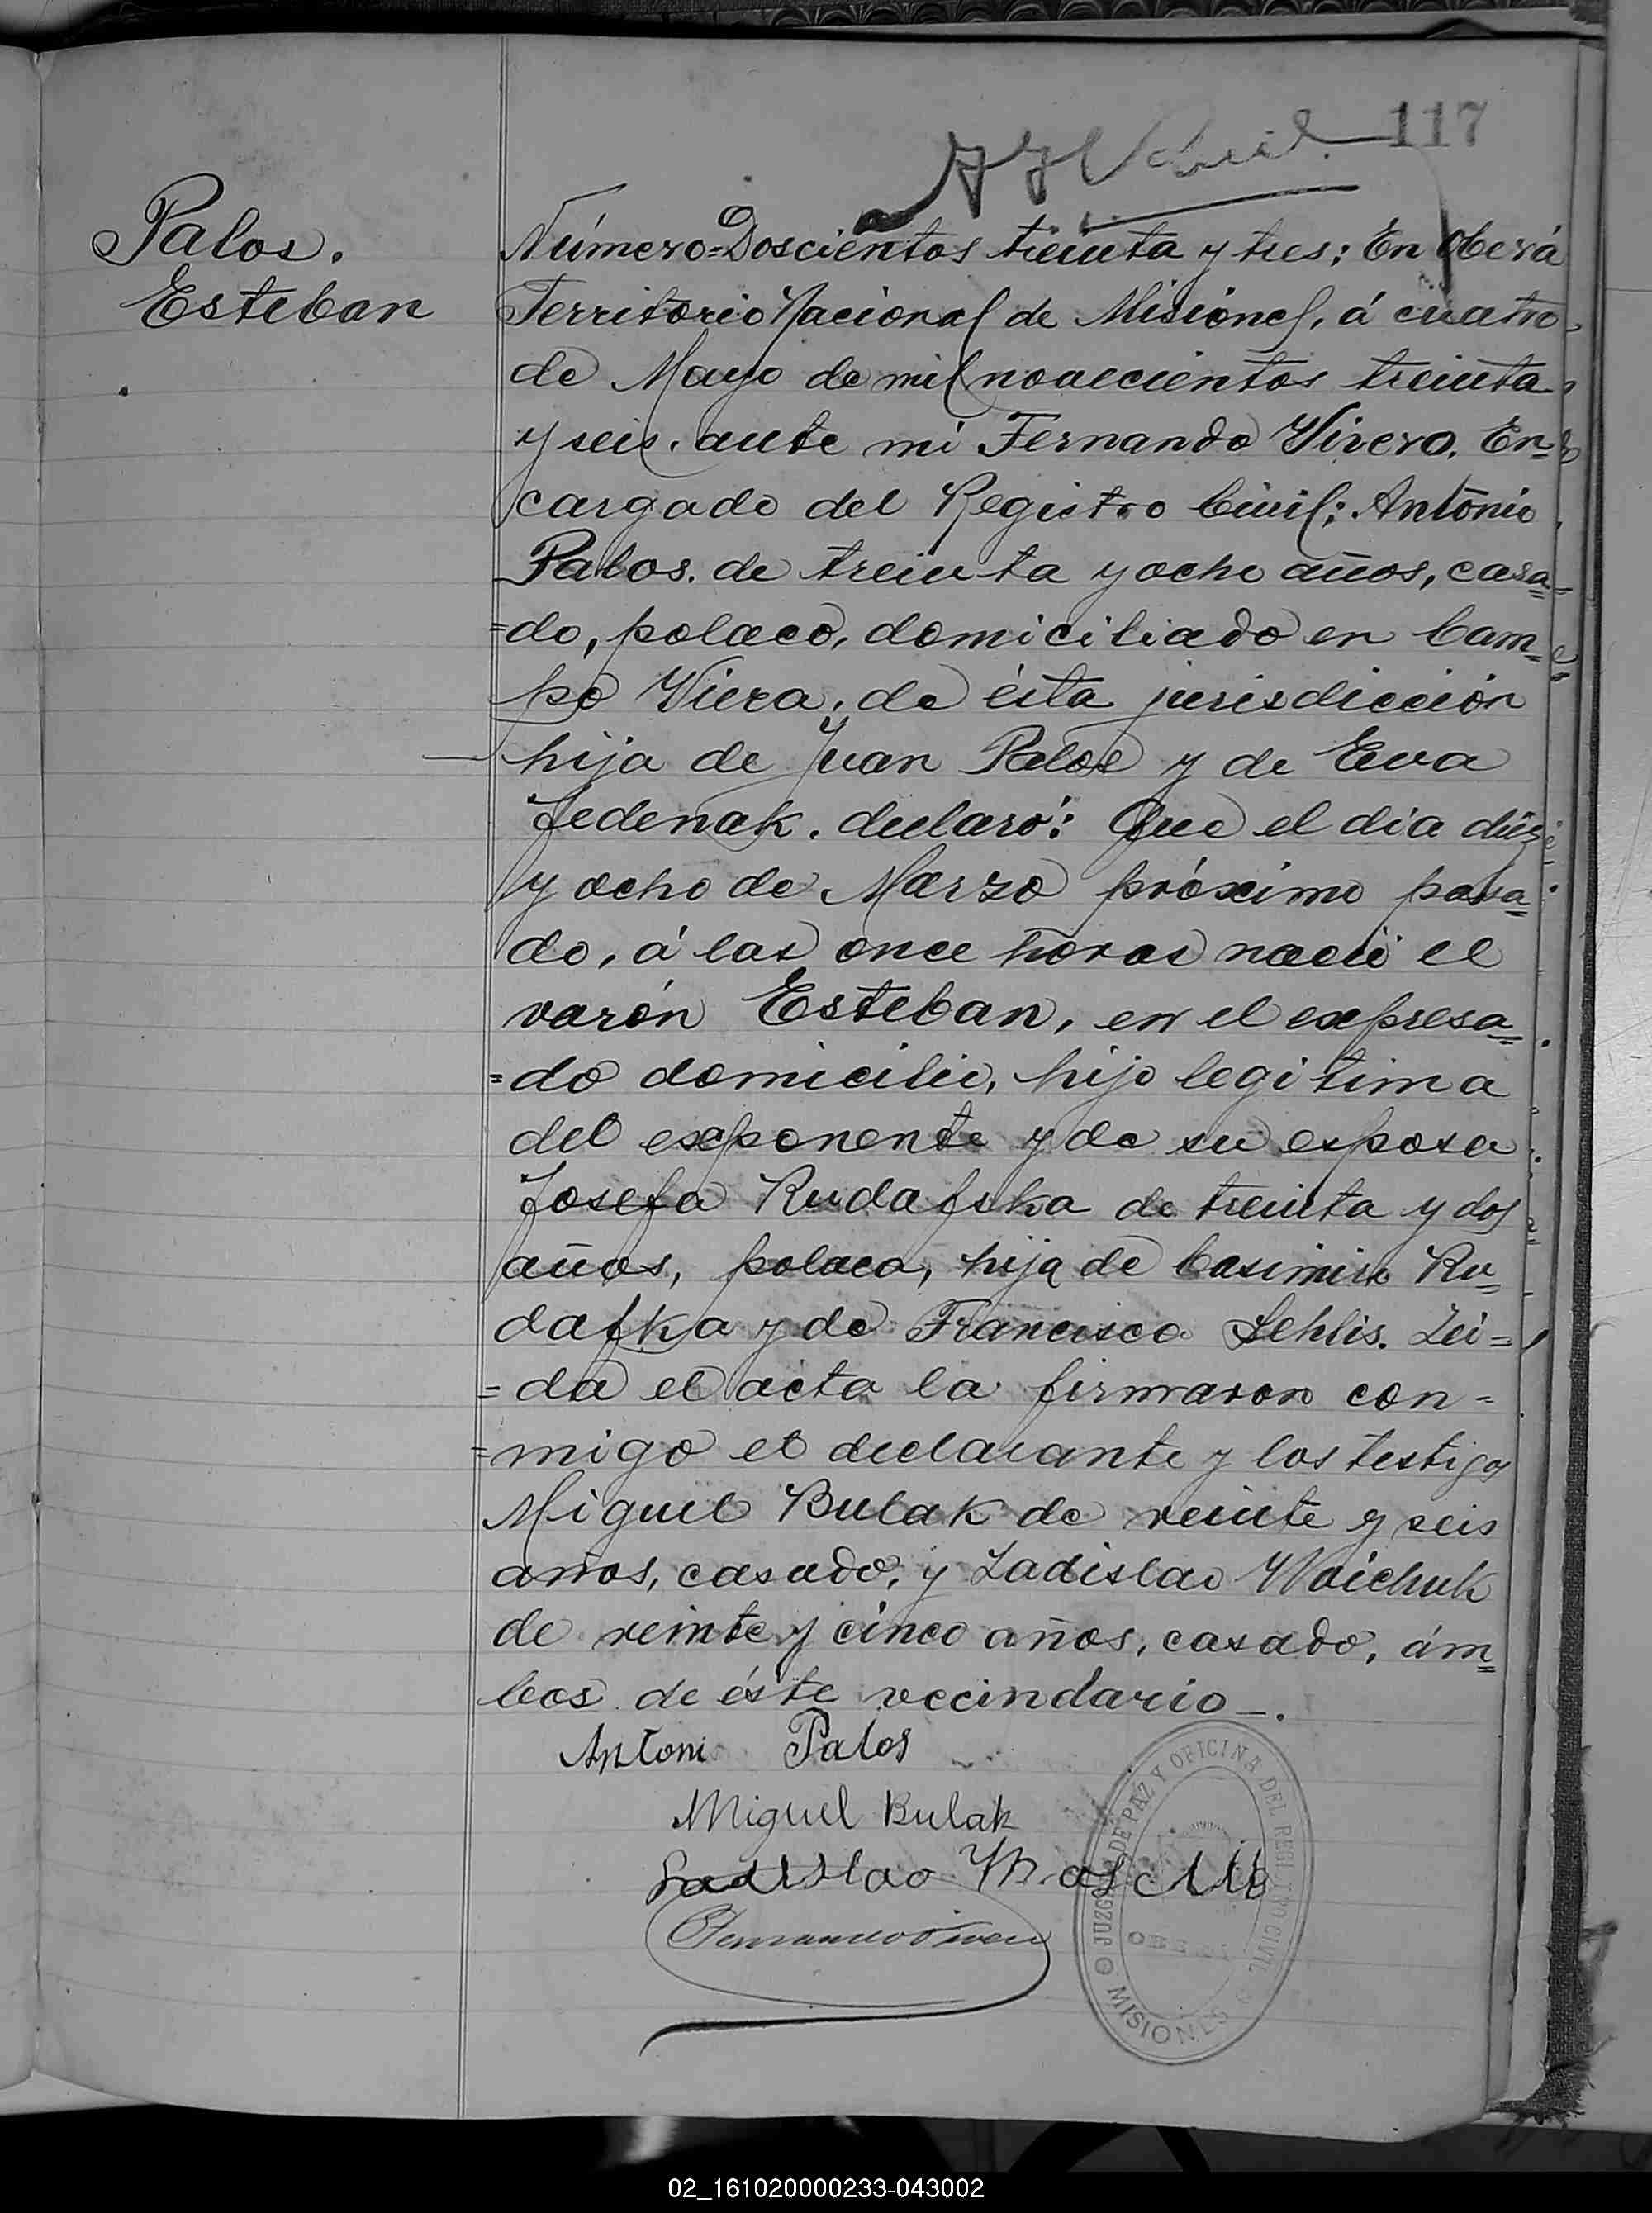 117
Palos.
Esteban
Número=Doscientos treinta y tres; En Oberá
Territorio Nacional de Misiones, á cuatro
de Mayo de mil novecientos treinta
y seis, ante mi Fernando Vivero, En=
cargado del Registro Civil; Antonio
Palos, de treinta y ocho años, casa=
=do, polaco, domiciliado en Cam=
po Viera, de ésta jurisdicción
hija de Juan Palos y de Eva
Jedenak, declaró: Que el dia diez
y ocho de Marzo próximo pasa=
do, á las once horas nació el
varón Esteban, en el expresa=
=do domicilio, hijo legitima
del exponente y de su esposa
Josefa Rudafska de treinta y dos
años, polaca, hija de Casimiro Ru=
dafka y de Francisca Lehlis. Lei=
=da el acta la firmaron con=
=migo el declarante y los testigos
Miguel Bulak de veinte y seis
años, casado, y Ladislao Woichuk
de veinte y cinco años, casado, ám=
bos de éste vecindario_.
Antoni Palos
Miguel Bulak
Ladislao
Fernando Vivero
JUZGADO DE PAZ Y OFICINA DEL REGISTRO CIVIL
OBERA
MISIONES
02_161020000233-043002